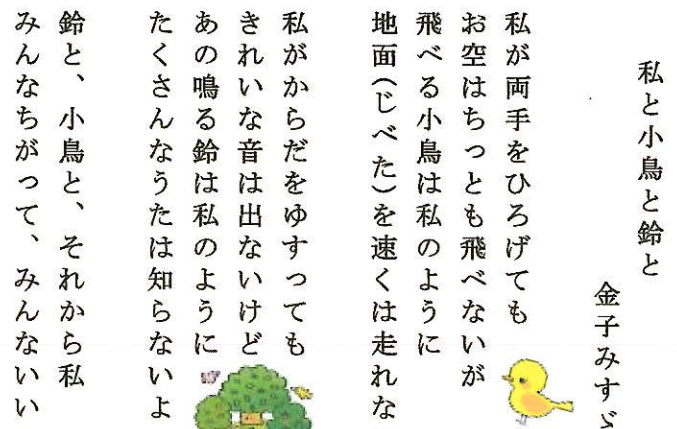 私と小鳥と鈴と
金子みすゞ
私が両手をひろげても
お空はちっとも飛べないが
飛べる小鳥は私のように
地面(じべた)を速くは走れな
私がからだをゆすっても
きれいな音は出ないけど
あの鳴る鈴は私のように
たくさんなうたは知らないよ
鈴と、小鳥と、それから私
みんなちがって、みんないい